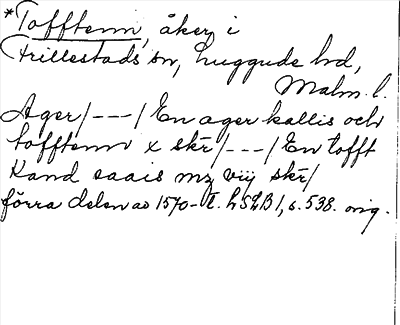 *Tofftenn, åker i
Frillestads sn, Luggude hd,
Malm. l.
Ager/---/En ager kallis och
tofftenn x skr/---/En tofft
Kand saais mz viij skr/
förra delen av 1570-t. LSLB 1, s. 538. orig.